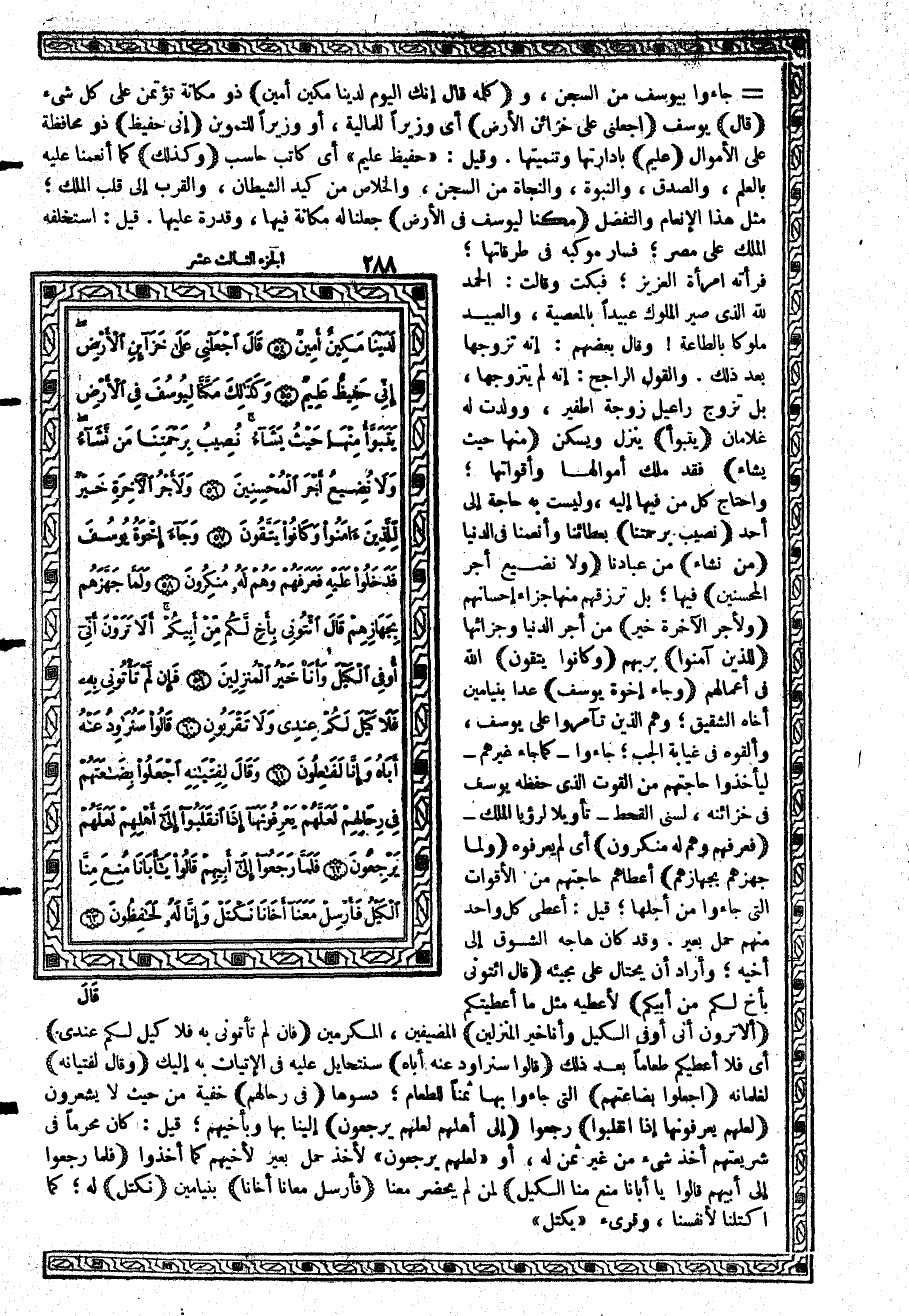 = جاءوا بيوسف من السجن ، و (كلمه قال إنك اليوم لدينا مكين أمين) ذو مكانة تؤتمن على كل شىء
(قال) يوسف (اجعلنى على خزائن الأرض) أى وزيراً للمالية ، أو وزيراً للتموين (إنى حفيظ) ذو محافظة
على الأموال (عليم) بادارتها وتنميتها . وقيل : «حفيظ عليم» أى كاتب حاسب (وكذلك) كما أنعمنا عليه
بالعلم ، والصدق ، والنبوة ، والنجاة من السجن ، والخلاص من كيد الشيطان ، والقرب إلى قلب الملك ؛
مثل هذا الإنعام والتفضل (مكنا ليوسف فى الأرض) جعلنا له مكانة فيها ، وقدرة عليها . قيل : استخلفه
الملك على مصر ؛ فسار موكبه فى طرقاتها ؛
فرأته امرأة العزيز ؛ فبكت وقالت : الحمد
لله الذى صير الملوك عبيداً بالمعصية ، والعبيد
ملوكا بالطاعة ! وقال بعضهم : إنه تزوجها
بعد ذلك . والقول الراجح : إنه لم يتزوجها ،
بل تزوج راعيل زوجة اطفير ، وولدت له
غلامان (يتبوأ) ينزل ويسكن (منها حيث
يشاء) فقد ملك أموالها وأقواتها ؛
واحتاج كل من فيها إليه ، وليست به حاجة إلى
أحد (نصيب برحمتنا) بعطائنا وأنعمنا فى الدنيا
(من نشاء) من عبادنا (ولا نضيع أجر
المحسنين) فيها ؛ بل نرزقهم منها جزاء إحسانهم
(ولأجر الآخرة خير) من أجر الدنيا وجزائها
(للذين آمنوا) بربهم (وكانوا يتقون) الله
فى أعمالهم (وجاء إخوة يوسف) عدا بنيامين
أخاه الشقيق ؛ وهم الذين تآمروا على يوسف ،
وألقوه فى غيابة الجب ؛ جاءوا ــ كما جاء غيرهم ــ
ليأخذوا حاجتهم من القوت الذى حفظه يوسف
فى خزائنه ، لسنى القحط ــ تأويلا لرؤيا الملك ــ
(فعرفهم وهم له منكرون) أى لم يعرفوه (ولما
جهزهم بجهازهم) أعطاهم حاجتهم من الأقوات
التى جاءوا من أجلها ؛ قيل : أعطى كل واحد
منهم حمل بعير . وقد كان هاجه الشوق إلى
أخيه ؛ وأراد أن يحتال على مجيئه (قال ائتونى
بأخ لكم من أبيكم) لأعطيه مثل ما أعطيتكم
(ألا ترون أنى أوفى الكيل وأنا خير المنزلين) المضيفين ، المكرمين (فان لم تأتونى به فلا كيل لكم عندى)
أى فلا أعطيكم طعاماً بعد ذلك (قالوا سنراود عنه أباه) سنتحايل عليه فى الإتيان به إليك (وقال لفتيانه)
لغلمانه (اجعلوا بضاعتهم) التى جاءوا بها ثمناً للطعام ؛ دسوها (فى رحالهم) خفية من حيث لا يشعرون
(لعلهم يعرفونها إذا انقلبوا) رجعوا (إلى أهلهم لعلهم يرجعون) إلينا بها وبأخيهم ؛ قيل : كان محرماً فى
شريعتهم أخذ شىء من غير ثمن له ، أو «لعلهم يرجعون» لأخذ حمل بعير لأخيهم كما أخذوا (فلما رجعوا
إلى أبيهم قالوا يا أبانا منع منا الكيل) لمن لم يحضر معنا (فأرسل معانا أخانا) بنيامين (نكتل) له ؛ كما
اكتلنا لأنفسنا ، وقرىء «يكتل»
٢٨٨ الجزء الثالث عشر
لَدَيْنَا مَكِينٌ أَمِينٌ ٥٤ قَالَ ٱجْعَلْنِى عَلَىٰ خَزَآئِنِ ٱلْأَرْضِ
إِنِّى حَفِيظٌ عَلِيمٌ ٥٥ وَكَذَٰلِكَ مَكَّنَّا لِيُوسُفَ فِى ٱلْأَرْضِ
يَتَبَوَّأُ مِنْهَا حَيْثُ يَشَآءُ ۚ نُصِيبُ بِرَحْمَتِنَا مَن نَّشَآءُ
وَلَا نُضِيعُ أَجْرَ ٱلْمُحْسِنِينَ ٥٦ وَلَأَجْرُ ٱلْآخِرَةِ خَيْرٌ
لِّلَّذِينَ ءَامَنُوا۟ وَكَانُوا۟ يَتَّقُونَ ٥٧ وَجَآءَ إِخْوَةُ يُوسُفَ
فَدَخَلُوا۟ عَلَيْهِ فَعَرَفَهُمْ وَهُمْ لَهُۥ مُنكِرُونَ ٥٨ وَلَمَّا جَهَّزَهُم
بِجَهَازِهِمْ قَالَ ٱئْتُونِى بِأَخٍ لَّكُم مِّنْ أَبِيكُمْ ۚ أَلَا تَرَوْنَ أَنِّىٓ
أُوفِى ٱلْكَيْلَ وَأَنَا۠ خَيْرُ ٱلْمُنزِلِينَ ٥٩ فَإِن لَّمْ تَأْتُونِى بِهِۦ
فَلَا كَيْلَ لَكُمْ عِندِى وَلَا تَقْرَبُونِ ٦٠ قَالُوا۟ سَنُرَٰوِدُ عَنْهُ
أَبَاهُ وَإِنَّا لَفَٰعِلُونَ ٦١ وَقَالَ لِفِتْيَٰنِهِ ٱجْعَلُوا۟ بِضَٰعَتَهُمْ
فِى رِحَالِهِمْ لَعَلَّهُمْ يَعْرِفُونَهَآ إِذَا ٱنقَلَبُوٓا۟ إِلَىٰٓ أَهْلِهِمْ لَعَلَّهُمْ
يَرْجِعُونَ ٦٢ فَلَمَّا رَجَعُوٓا۟ إِلَىٰٓ أَبِيهِمْ قَالُوا۟ يَٰٓأَبَانَا مُنِعَ مِنَّا
ٱلْكَيْلُ فَأَرْسِلْ مَعَنَآ أَخَانَا نَكْتَلْ وَإِنَّا لَهُۥ لَحَٰفِظُونَ ٦٣
قَالَ